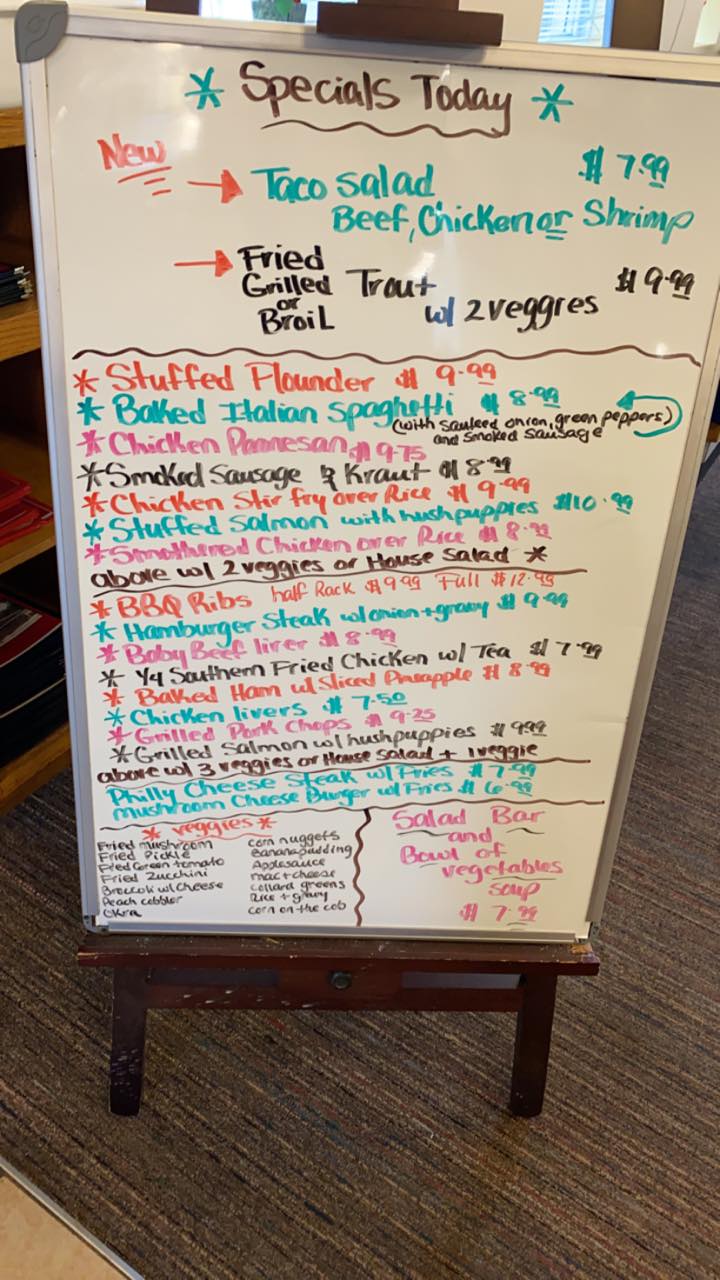 * Specials Today *
New
→ Taco salad $ 7.99
Beef, Chicken or Shrimp
→ Fried
Grilled Trout $ 9.99
or
Broil w/ 2 veggres
* Stuffed Flounder $ 9.99
* Baked Italian Spaghetti $ 8.99
(with sauteed onion, green peppers)
and smoked sausage
* Chicken Parmesan $ 9.75
* Smoked Sausage & Kraut $ 8.99
* Chicken Stir fry over Rice $ 9.99
* Stuffed Salmon with hushpuppies $10.99
* Smothered Chicken over Rice $ 8.99
above w/ 2 veggies or House Salad *
* BBQ Ribs half Rack $9.99 Full $12.99
* Hamburger Steak w/onion+gravy $ 9.99
* Baby Beef liver $ 8.99
* 1/4 Southern Fried Chicken w/ Tea $ 7.99
* Baked Ham w/Sliced Pineapple $ 8.99
* Chicken livers $ 7.50
* Grilled Pork Chops $ 9.25
* Grilled Salmon w/hushpuppies $ 9.99
above w/ 3 veggies or House Salad + 1 veggie
Philly Cheese Steak w/Fries $ 7.99
mushroom Cheese Burger w/Fries $ 6.99
* veggies *
Fried mushroom
Fried Pickle
Fried Green tomato
Fried Zucchini
Broccoli w/cheese
Peach cobbler
Okra
corn nuggets
Banana pudding
Applesauce
mac+cheese
collard greens
Rice + gravy
corn on the cob
Salad Bar
and
Bowl of
vegetables
soup
$ 7.99